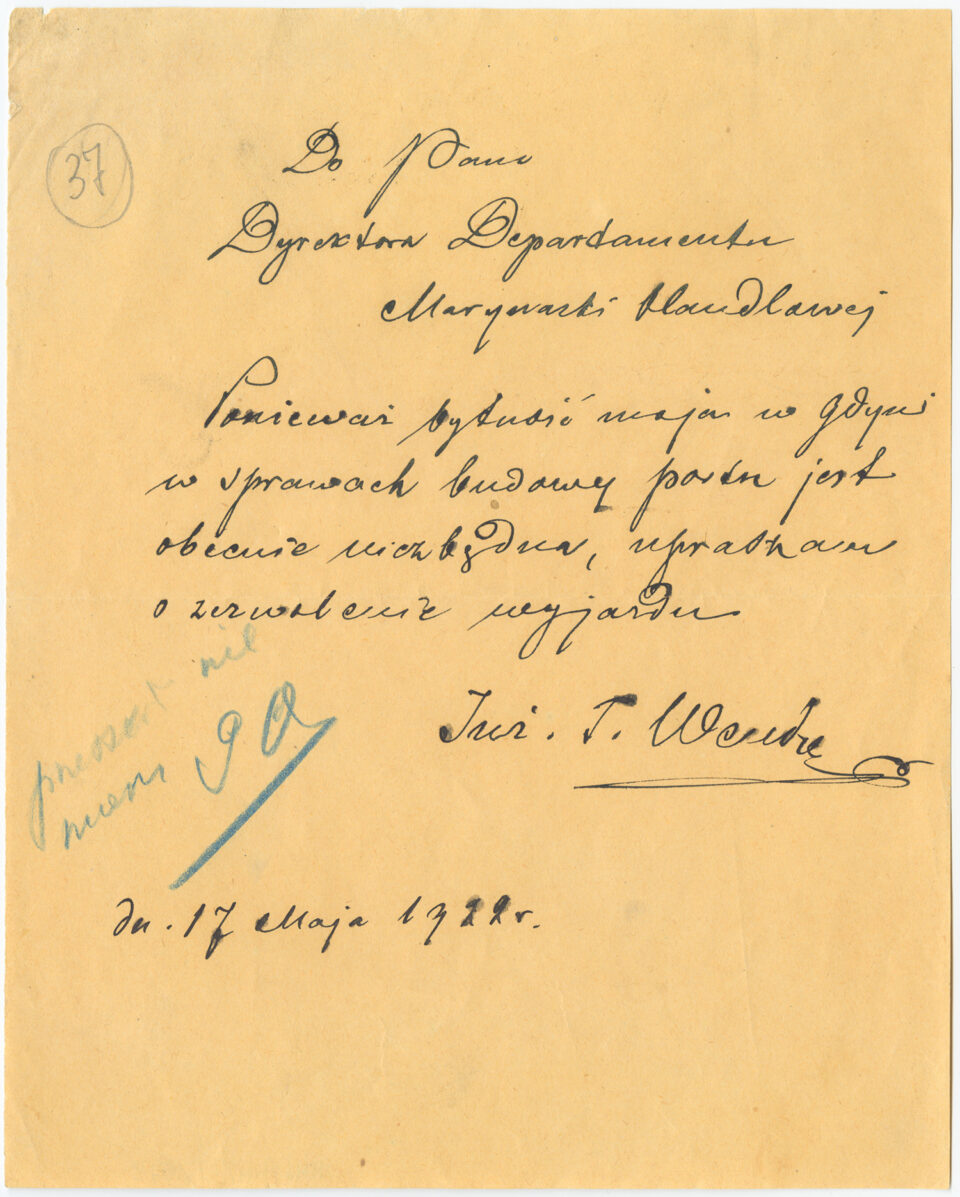 37
Do Pana
Dyrektora Departamentu
Marynarki Handlowej
Ponieważ bytność moja w Gdyni
w sprawach budowy portu jest
obecnie niezbędna, upraszam
o zezwolenie wyjazdu
Inż. T. Wenda
dn. 17 Maja 1922 r.